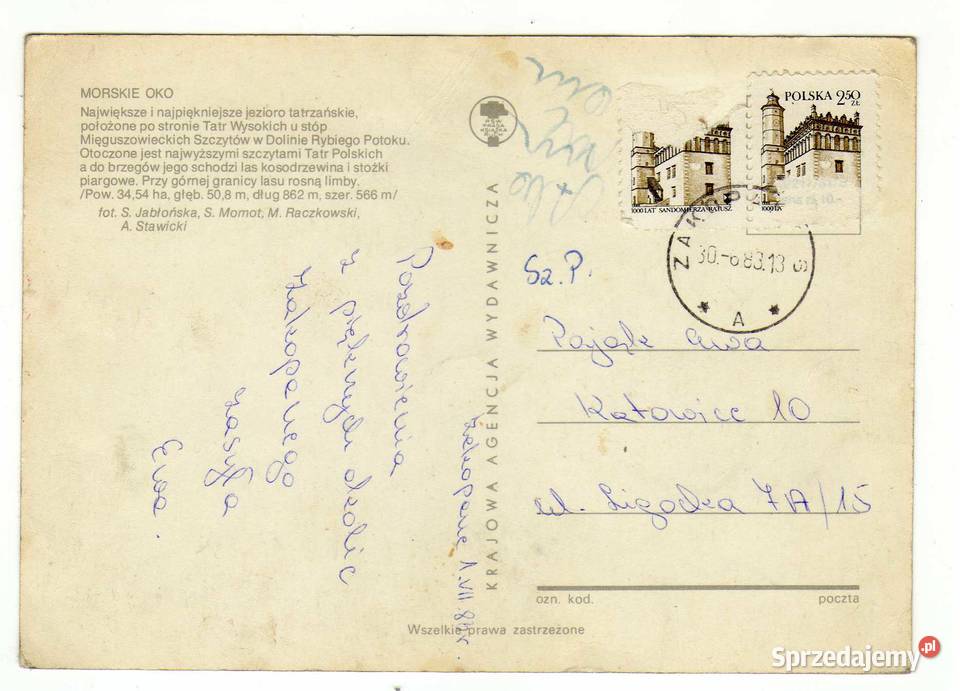 MORSKIE OKO
Największe i najpiękniejsze jezioro tatrzańskie,
położone po stronie Tatr Wysokich u stóp
Mięguszowieckich Szczytów w Dolinie Rybiego Potoku.
Otoczone jest najwyższymi szczytami Tatr Polskich
a do brzegów jego schodzi las kosodrzewina i stożki
piargowe. Przy górnej granicy lasu rosną limby.
/Pow. 34,54 ha, głęb. 50,8 m, dług 862 m, szer. 566 m/
fot. S. Jabłońska, S. Momot, M. Raczkowski,
A. Stawicki
Pozdrowienia
z pięknych okolic
Zakopanego
zasyła
Ewa.
Zakopane 1.VII.
KRAJOWA AGENCJA WYDAWNICZA
POLSKA 2,50
ZŁ
1000 LAT SANDOMIERZA-RATUSZ
30.-6 83.13
A
Sz.P.
Pająk Ewa
Katowice 10
ul. Ligocka 7A/15
ozn. kod. poczta
Wszelkie prawa zastrzeżone
Sprzedajemy.pl